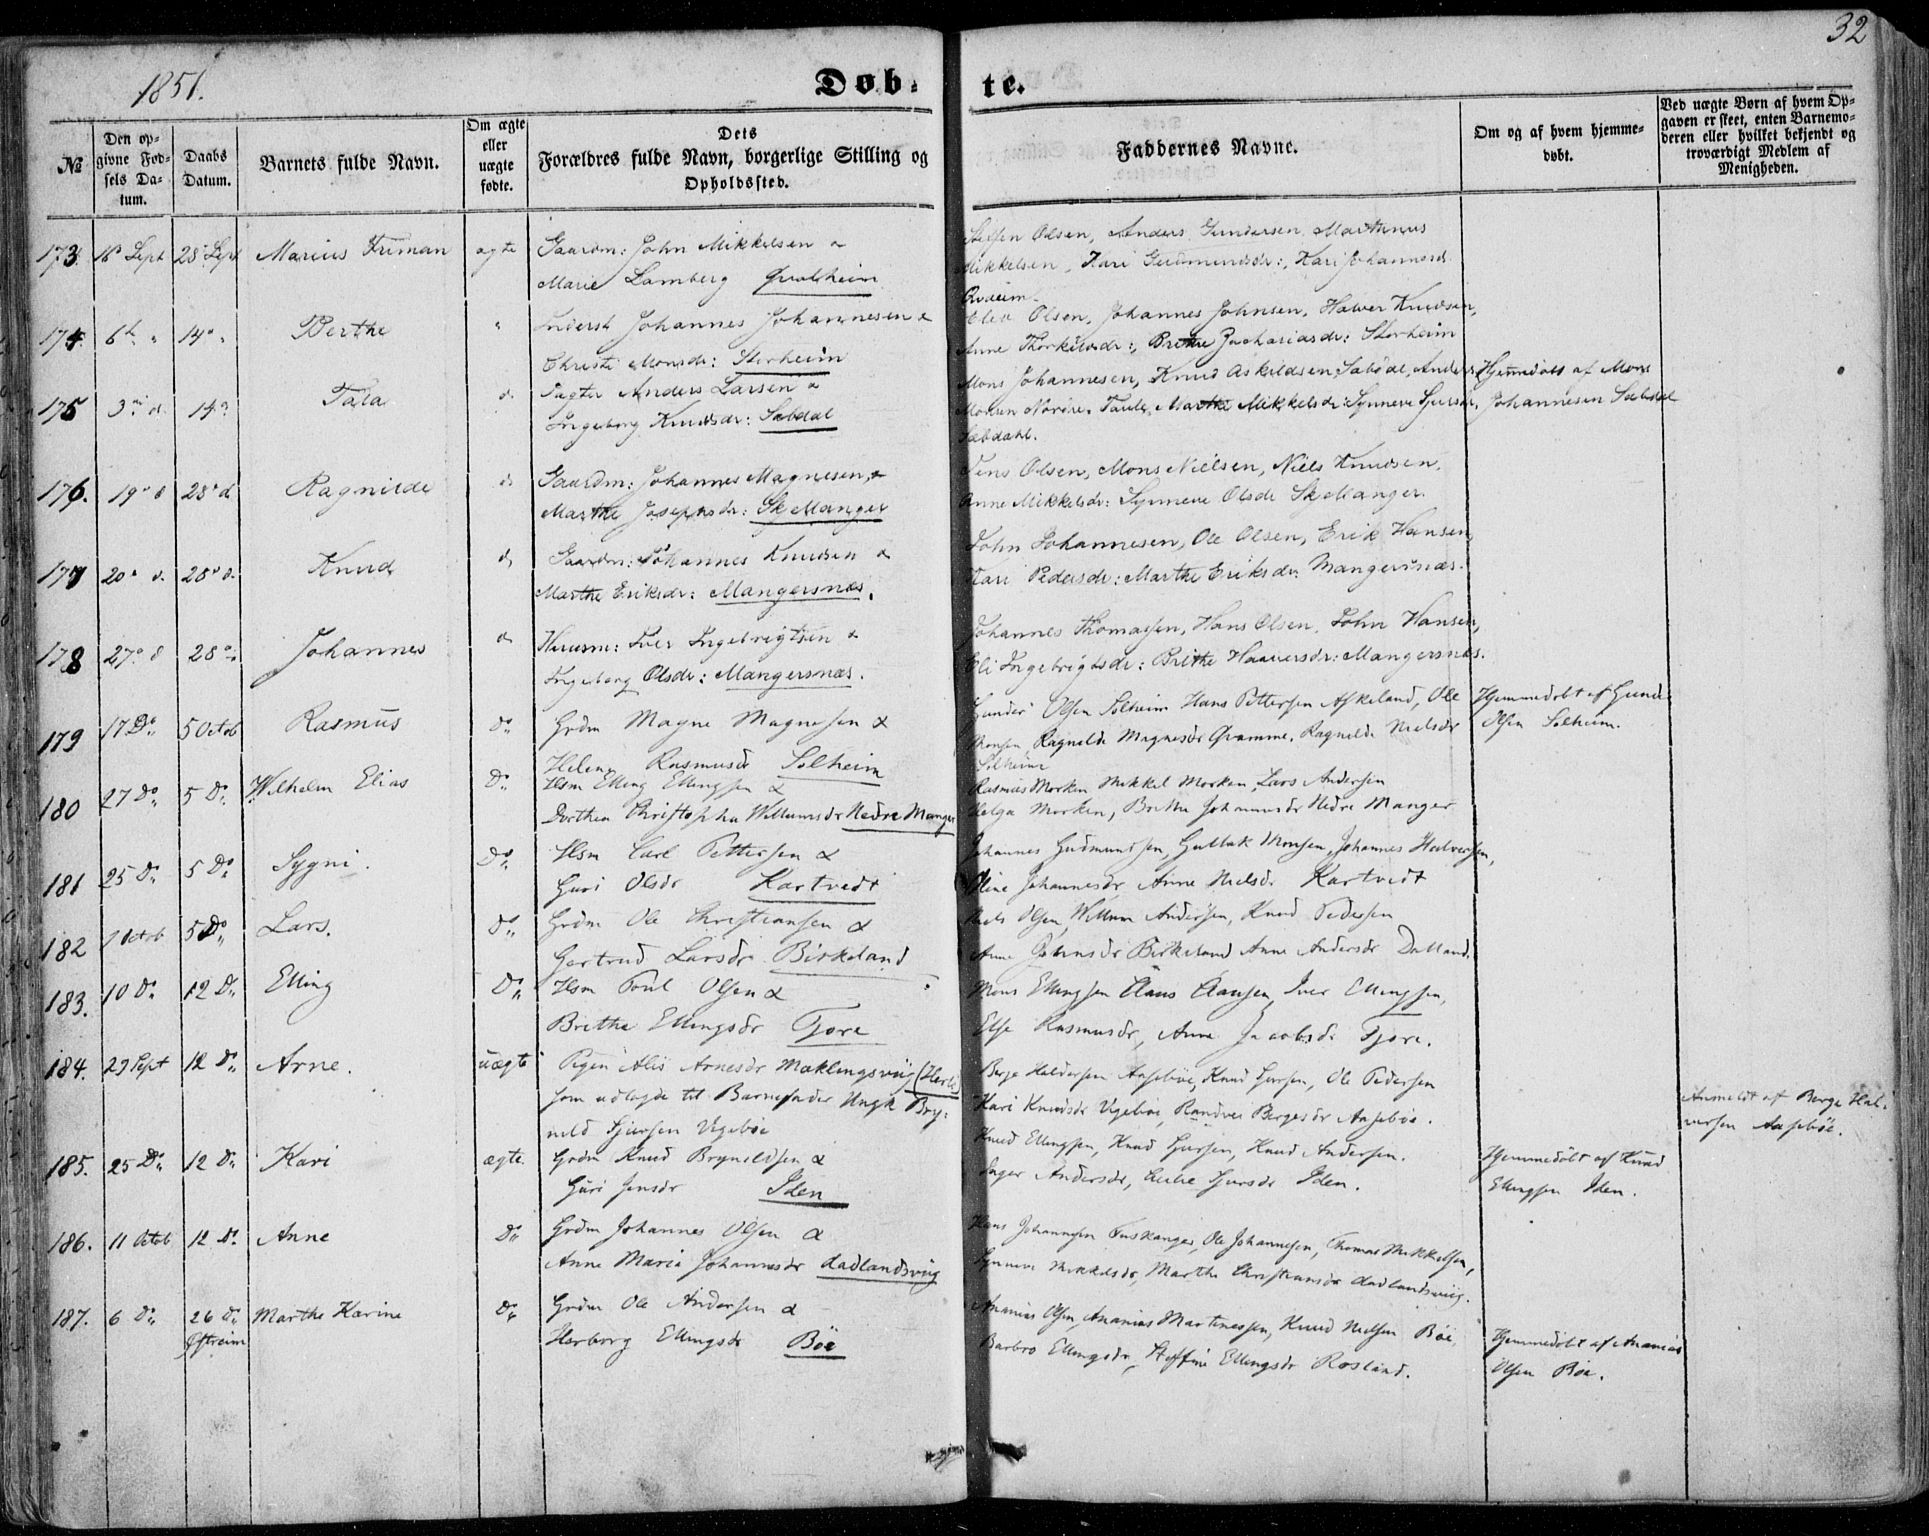 32
1851.
Døb-
te.
№
Den op-
givne Fød-
sels Da-
tum.
Daabs
Datum.
Barnets fulde Navn.
Om ægte
eller
uægte
fødte.
Dets
Forældres fulde Navn, borgerlige Stilling og
Opholdssted.
Faddernes Navne.
Om og af hvem hjemme-
døbt.
Ved uægte Børn af hvem Op-
gaven er skeet, enten Barnemo-
deren eller hvilket bekjendt og
troværdigt Medlem af
Menigheden.
173 Sept 28 Sept Marius ægte Gaardm: John Mikkelsen &
Marie Lamberg Qvalheim
Olsen, Anders Gundersen, Marthinus
Mikkelsen, Kari Gudmundsdr:, Kari Johannesd.
174. 6 14 Berthe Inderst Johannes Johannesen &
Christi Monsdr: Storheim
Olsen, Johannes Johnsen, Halvor Knudsen,
Anne Thorkildsdr:, Brithe Zachariasdr: Storheim
175 3 d. 14 d. Anders Larsen &
Ingeborg Knudsdr: Sæbdal
Mons Johannesen, Knud Askildsen, Sæbdal, Anders
Monsen Nordre, Marthe Mikkelsdr: Synneve
Sæbdahl.
Hjemmedøbt af Mons
Johannesen Sæbdal
176. 19 d 28 d Ragnilde d Gaardm: Johannes Magnesen &
Marthe Josephsdr: Sk Manger
Jens Olsen, Mons Nielsen, Niels Knudsen,
Anne Mikkelsdr: Synneve Olsdr Sk Manger.
177 20 d. 28 d. Knud d Gaardm: Johannes Knudsen &
Marthe Eriksdr: Mangersnæs.
John Johannesen, Ole Olsen, Erik Hansen,
Kari Pedersdr: Marthe Eriksdr: Mangersnæs.
178 27 d 28 Johannes d Huusm: Iver Ingebrigtsen &
Ingeborg Olsdr: Mangersnæs.
Johannes Thomassen, Hans Olsen, John Hansen,
Eli Ingebrigtsdr: Brithe Haaversdr: Mangersnæs.
179 17 Do 5 Octob Rasmus do Grdm Magne Magnesen &
Helena Rasmusdr Solheim
Gunder Olsen Solheim Hans Pettersen Askeland, Ole
Monsen, Ragnilde Magnesdr Qvamme, Ragnilde Nielsdr
Solheim
Hjemmedøbt af Gunder
Olsen Solheim.
180 27 Do 5 Do Wilhelm Elias Do Hsm Elling Ellingsen &
Dorthea Christopha Willumsdr Nedre Manger
Rasmus Morken Mikkel Morken, Lars Andersen
Helga Morken, Brithe Johannesdr Nedre Manger
181 25 Do 5 Do Sygni. Do Hsm Carl Pettersen &
Guri Olsdr Kartvedt
Johannes Gudmundsen, Gullak Monsen, Johannes Halversen,
Oline Johannesdr, Anne Nielsdr Kartvedt
182 1 Octob 5 Do Lars. Do Grdm Ole Christiansen &
Gertrud Larsdr Birkeland
Niels Olsen, Willum Andersen, Knud Pedersen
Anne Johnsdr Birkeland Anne Andersdr Dalland.
183. 10 Do 12 Do Elling Do Hsm Poul Olsen &
Brithe Ellingsdr Fjore
Mons Ellingsen Claus Clausen, Iver Ellingsen,
Else Rasmusdr, Anne Jacobsdr Fjore.
184. 29 Sept 12 Do Arne. uægte Pigen Alis Arnesdr Maklingsviig (Herlø)
som udlagde til Barnefader Ungk Bry-
nild Sjursen Vigebøe
Berge Haldorsen Aasebøe, Knud Sjursen, Ole Pedersen
Kari Knudsdr Vigebøe, Randver Bergesdr Aasebøe.
Anmeldt af Berge Hal-
versen Aasebøe.
185. 25 Do 12 Do Kari ægte. Grdm Knud Brynildsen &
Guri Jensdr Iden
Knud Ellingsen, Knud Sjursen, Knud Andersen.
Inger Andersdr, Sjursdr Iden.
Hjemmedøbt af Knud
Ellingsen Iden.
186. 11 Octob 12 Do Anne Do Grdm Johannes Olsen &
Anne Maria Johannesdr Aadlandsviig
Hans Johannesen Fuskanger, Ole Johannesen, Thomas Mikkelsen,
Synneve Mikkelsdr, Marthe Christiansdr Aadlandsviig.
187. 6 Do 26 Do Marthe Karine Do Grdm Ole Andersen &
Østreim
Herborg Ellingsdr Bøe
Ananias Olsen, Ananias Martinessen, Knud Nielsen Bøe,
Barbro Ellingsdr, Steffine Ellingsdr Rosland.
Hjemmedøbt af Ananias
Olsen Bøe.